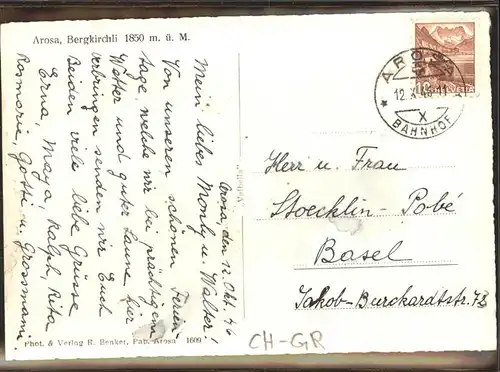 Arosa, Bergkirchli 1850 m. ü. M.
Arosa den 12. Okt. 46
Mein lieber Mondy u. Walter!
Von unseren schönen Ferien-
tage welche wir bei prächtigem
Wetter und guter Laune hier
verbringen senden wir Euch
Beiden viele liebe Grüsse
Erna, Maya, Ralph, Rita
Rosmarie, Gotti u. Grossmami.
Phot. & Verlag R. Benker, Pab. Arosa 1609
AROSA
12.X.46-11
X
BAHNHOF
HELVETIA
Herr u. Frau
Stoecklin-Pobé
Basel
Jakob-Burckhardtstr. 78
CH-GR